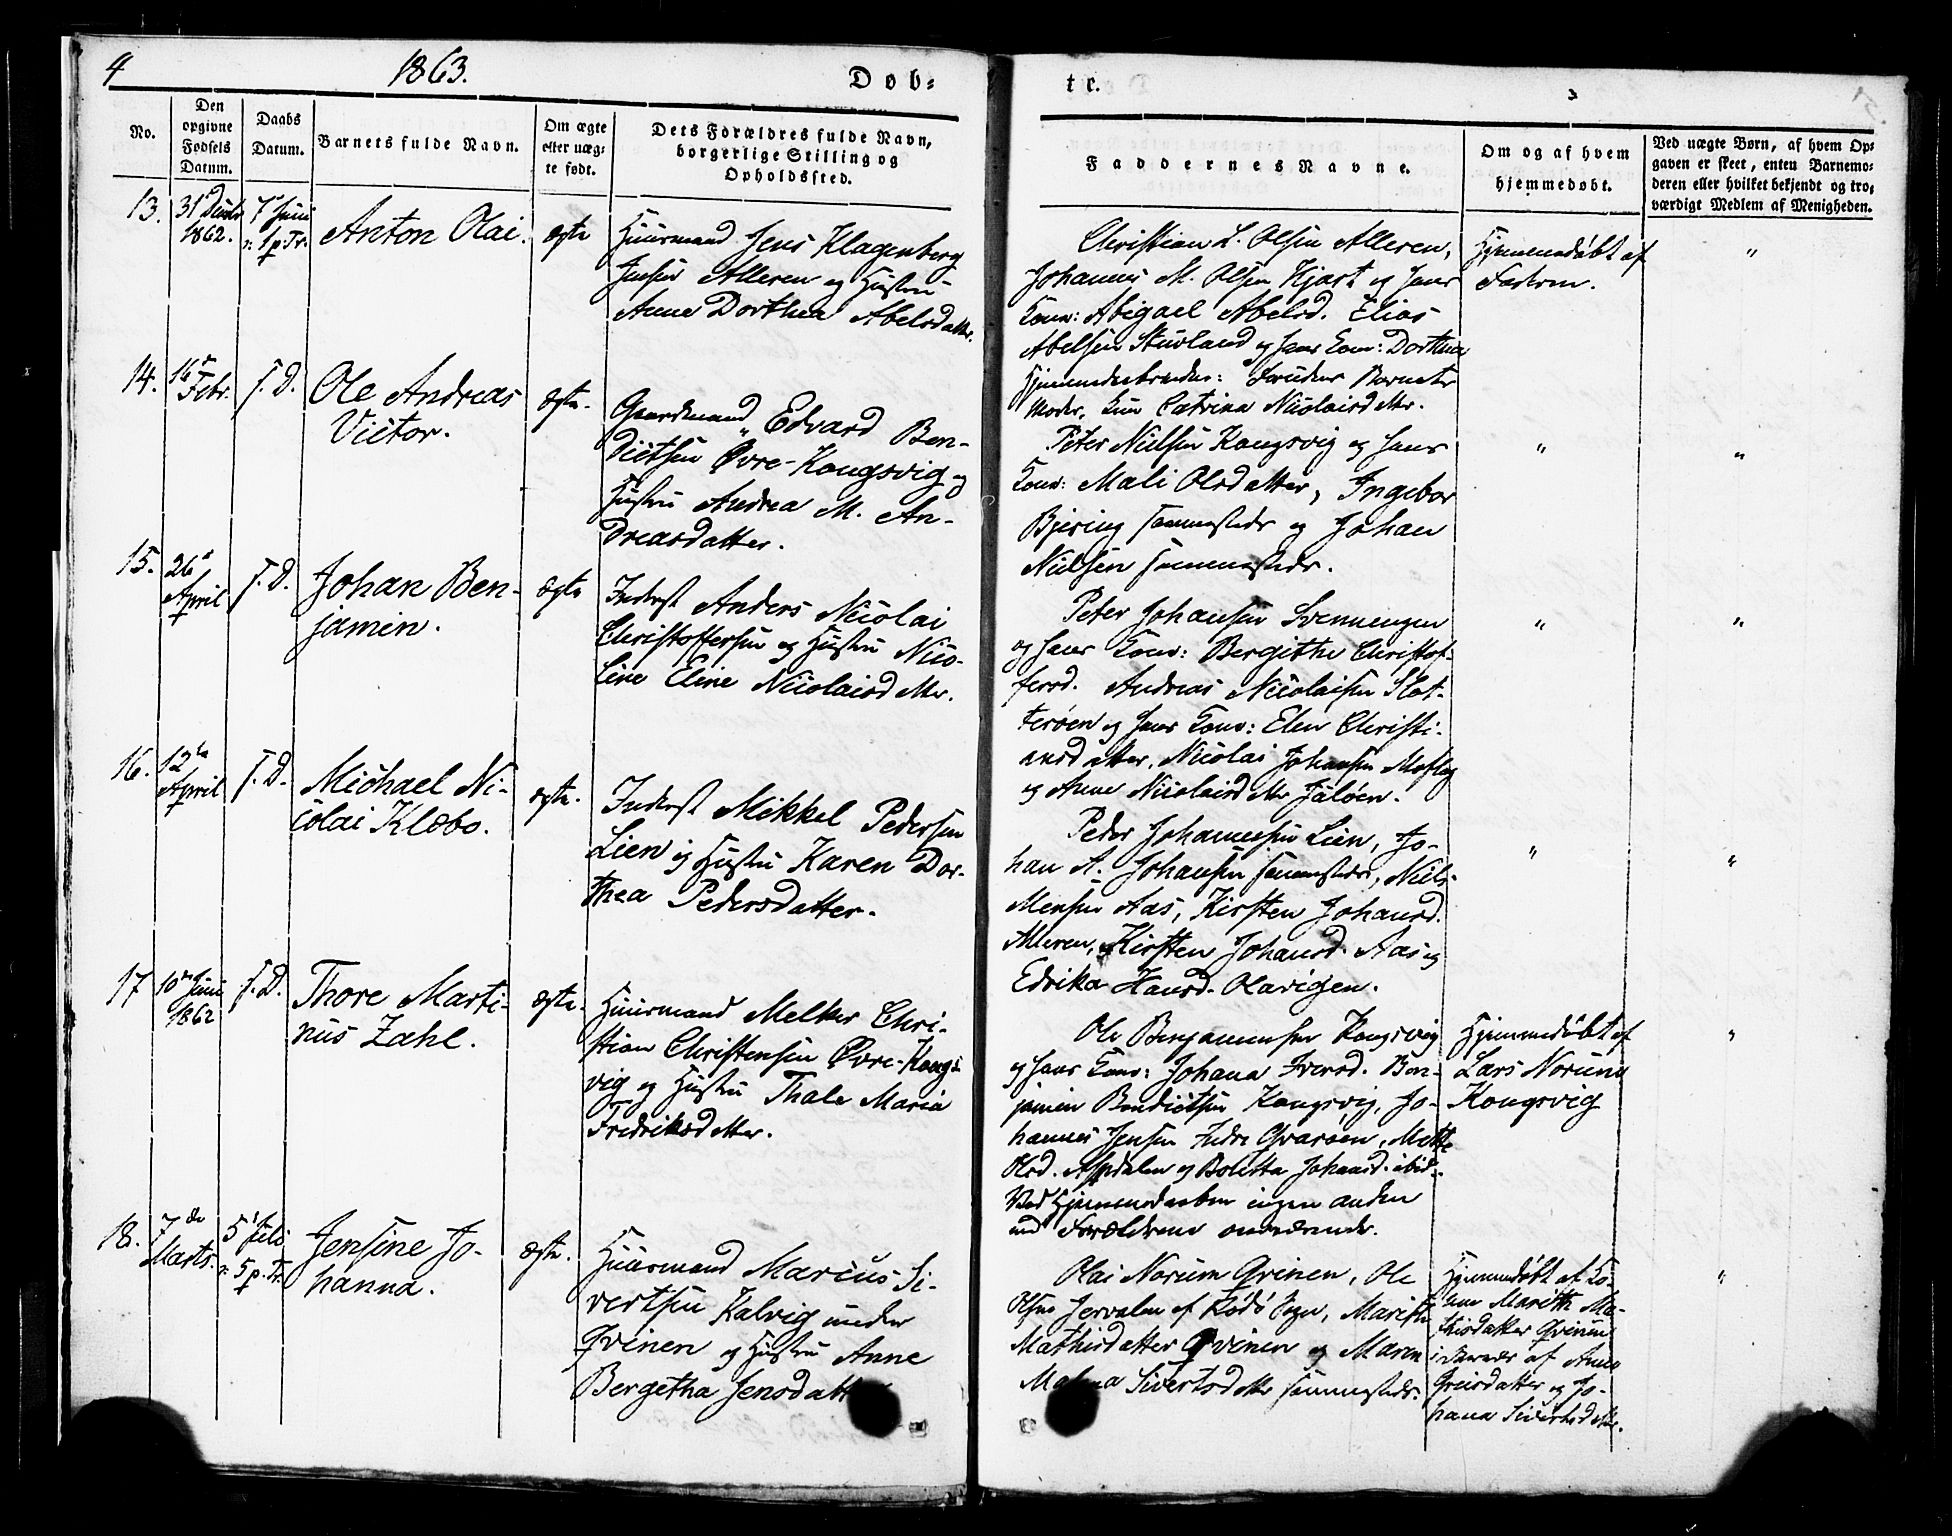 4
1863.
Døb-
te.
No.
Den
opgivne
Fødsels
Datum.
Daabs
Datum.
Barnets fulde Navn.
Om ægte
eller uæg-
te født.
Dets Forældres fulde Navn,
borgerlige Stilling og
Opholdssted.
Faddernes Navne.
Om og af hvem
hjemmedøbt.
Ved uægte Børn, af hvem Op-
gaven er skeet, enten Barnemo-
deren eller hvilket bekjendt og tro-
værdigt Medlem af Menigheden.
13.
31 Decbr
1862.
7 Juni
1 p. Tr.
Anton Olai.
ægte
Huusmand Jens Klagenberg
Jensen Alleren og Hustru
Anna Dorthea Abelsdatter.
Christian L. Olsen Alleren,
Johannes M. Olsen Hjart og hans
Kone: Abigael Abelsd. Elias
Abelsen Stuvland og hans Kone: Dorthea
Hjemmedøbt af
Faderen.
"
Moder, Kone Catrina Nicolaisdatter.
14.
16de
Febr.
s. D.
Ole Andreas
Victor.
ægte.
Gaardmand Edvard Ben-
dictsen Øvre-Kongsvig og
Hustru Andrea M. An-
dreasdatter.
Peter Nielsen Kongsvig og hans
Kone: Mali Olsdatter, Ingebor
Bjering sammesteds og Johan
Nielsen sammesteds.
"
"
15.
26de
April
s. D.
Johan Ben-
jamin.
ægte
Inderst Anders Nicolai
Christoffersen og Hustru Nico-
line Eline Nicolaisdatter.
Peter Johansen Svenningen
og hans Kone: Bergithe Christof-
fersd. Andreas Nicolaisen Slot-
terøen og hans Kone: Elen Christi-
ansdatter, Nicolai Johansen
og Anne Nicolaisdatter
"
"
16.
12te
April
s. D.
Michael Ni-
colai Klæbo.
ægte.
Inderst Mikkel Pedersen
Lien og Hustru Karen Dor-
thea Pedersdatter.
Peder Johannesen Lien, Jo-
han A. Johansen sammesteds, Niels
Monsen Aas, Kirsten Johansd.
Alleren, Kirsten Johansd. Aas og
Edrika Hansd. Olavigen.
"
"
17
10de Juni
1862
s. D.
Thore Marti-
nus Zahl.
ægte.
Huusmand Melker Chri-
stian Christensen Øvre-Kongs-
vig og Hustru Thale Maria
Fredriksdatter.
Ole Benjaminsen Kongsvig
og hans Kone: Johana Iversd. Ben-
jamin Bendictsen Kongsvig, Jo-
hannes Jensen Indre Qvarøen, Mette
Olsd. Aspdalen og Boletta Johansd. ibid.
Ved Hjemmedaaben ingen anden
end Forældrene nærværende.
Hjemmedøbt af
Lars Norum
Kongsvig
"
18.
7de
Marts.
5 Juli
5 p. Tr.
Jensine Jo-
hanna.
ægte.
Huusmand Marcus Si-
vertsen Kalvig under
Qvinen og Hustru Anne
Bergetha Jensdatter
Olai Norum Qvinen, Ole
Olsen Jervalen af Rødø Sogn, Marith
Mathisdatter Qvinen og Maren
Sivertsdatter sammesteds.
Hjemmedøbt af Ko-
ne Marith Ma-
thisdatter Qvinen
i Nærvær af Anne
og Jo-
hana Sivertsdatter.
"